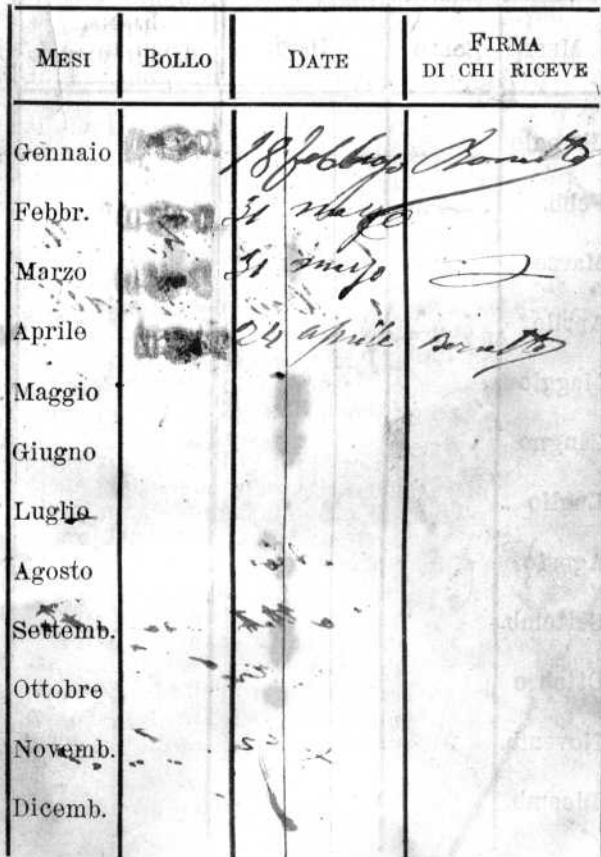 MESI BOLLO DATE FIRMA
DI CHI RICEVE
Gennaio 18 febbraio
Febbr. 31 marzo
Marzo 31 marzo
Aprile 24 aprile
Maggio
Giugno
Luglio
Agosto
Settemb.
Ottobre
Novemb.
Dicemb.